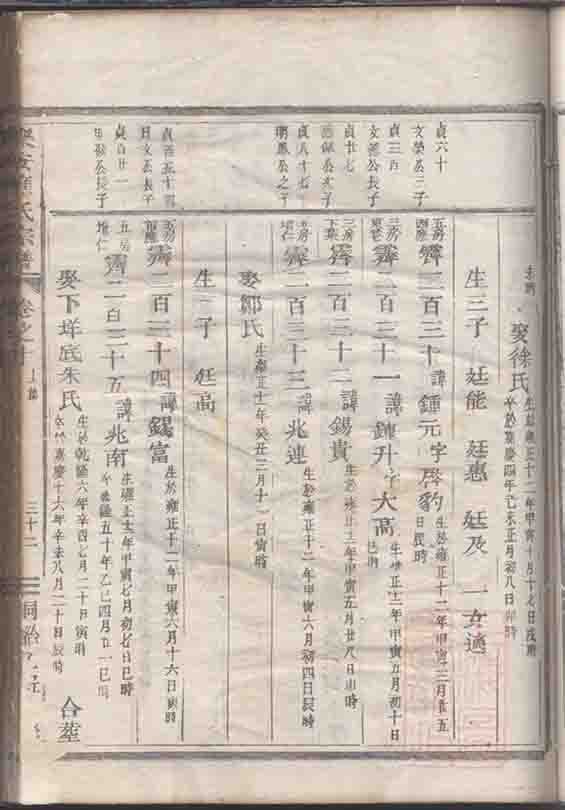 貞六十
文榮公三子
貞三百
文公長子
貞廿七
公次子
貞八十七
公之子
貞百五十
日文公長子
貞百廿一
公長子
娶徐氏 生於雍正十二年甲寅十月十七日戌時
卒於嘉慶四年己未正月初八日卯時
生三子 廷能 廷惠 廷及 一女適
五房 霽二百三十 諱鍾元字 豹 生於雍正十二年甲寅三月廿五
日辰時
三房 霽二百三十一 諱鍊升字大高 生雍正十二年甲寅五月初十日
三房 霽二百三十二 諱錫貴 生於雍正十二年甲寅五月廿八日 時
五房 霽二百三十三 諱兆連 生於雍正十二年甲寅六月初四日辰時
娶鄒氏 生雍正十一年癸丑三月十一日寅時
生一子 任高
五房 霽二百三十四 諱錫富 生於雍正十二年甲寅六月十六日寅時
五房 霽二百三十五 諱兆南 生雍正十二年甲寅七月初七日巳時
卒乾隆五十年乙巳四月廿一巳時
娶下垟底朱氏 生於乾隆六年辛酉七月二十日寅時
卒於嘉慶十六年辛未八月二十日辰時
合塋
氏宗譜 卷之十 三十二 同治